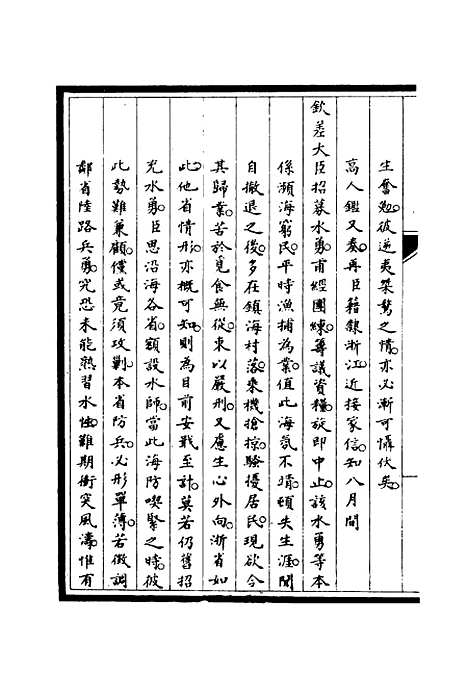 生奮勉彼逆夷桀驁之情亦必漸可懾伏矣
高人鑑又奏再臣籍隸浙江近接家信知八月間
欽差大臣招募水勇甫經團練籌議資糧旋即中止該水勇等本
係瀕海窮民平時漁捕為業值此海氛不靖頓失生涯聞
自撤退之後多在鎮海村落乘機搶掠騷擾居民現欲令
其歸業苦於覓食無從束以嚴刑又慮生心外向浙省如
此他省情形亦概可知則為目前安戢至計莫若仍舊招
充水勇臣思沿海各省額設水師當此海防喫緊之時彼
此勢難兼顧儻或竟須攻剿本省防兵必形單薄若徵調
鄰省陸路兵勇究恐未能熟習水性難期衝突風濤惟有